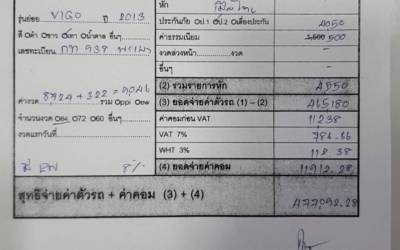 หัก
รุ่นย่อย VIGO ปี 2013
ประกันภัย ป.1 ป.2
4050
สี ดำ ขาว เทา น้ำตาล อื่นๆ
ค่าธรรมเนียม 1,500 500
เลขทะเบียน กท 939 พะเยา
งวดล่วงหน้า งวด
อื่นๆ
–
(2) รวมรายการหัก 4550
8724 + 322 = 9046
ค่างวด รวม ppi ew
(3) ยอดจ่ายค่าตัวรถ (1) – (2) 465,180
จำนวนงวด 84 72 60 อื่นๆ
ค่าคอมก่อน VAT 11238
งวดแรกวันที่
VAT 7% 786.66
WHT 3%
8%
(4) ยอดจ่ายค่าคอม
สุทธิจ่ายค่าตัวรถ + ค่าคอม (3) + (4) 477,092.28